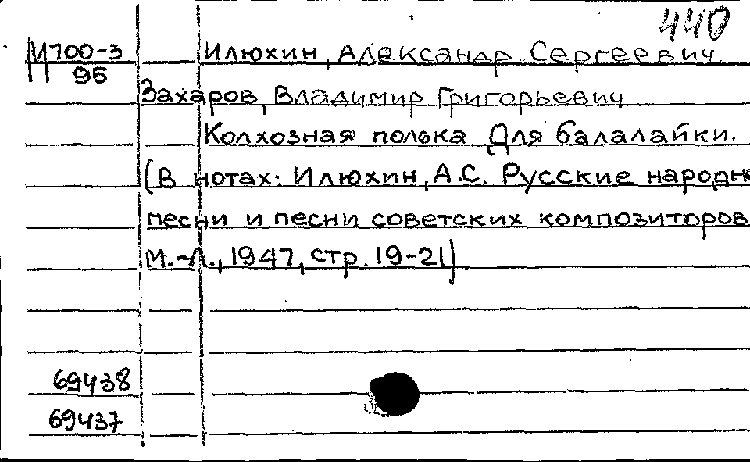 440
М700-3 Илюхин, Александр Сергеевич
96
Захаров, Владимир Григорьевич
Колхозная полька Для балалайки.
(В нотах: Илюхин, А.С. Русские народн
песни и песни советских композиторов
М.-Л., 1947, стр. 19-21)
69438
69437